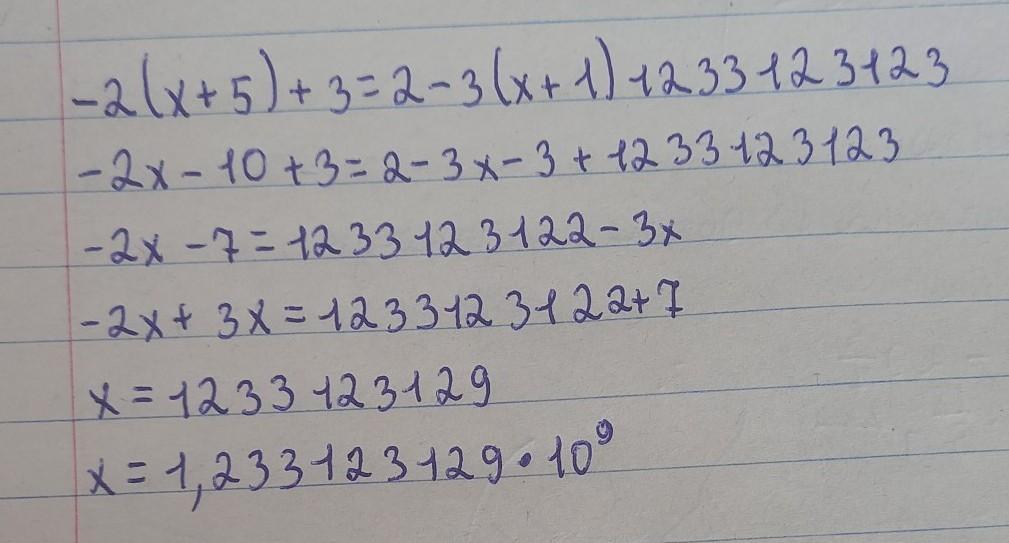 -2(x+5)+3=2-3(x+1)1233123123
-2x-10+3=2-3x-3+1233123123
-2x-7=1233123122-3x
-2x+3x=1233123122+7
x=1233123129
x=1,233123129•10⁹